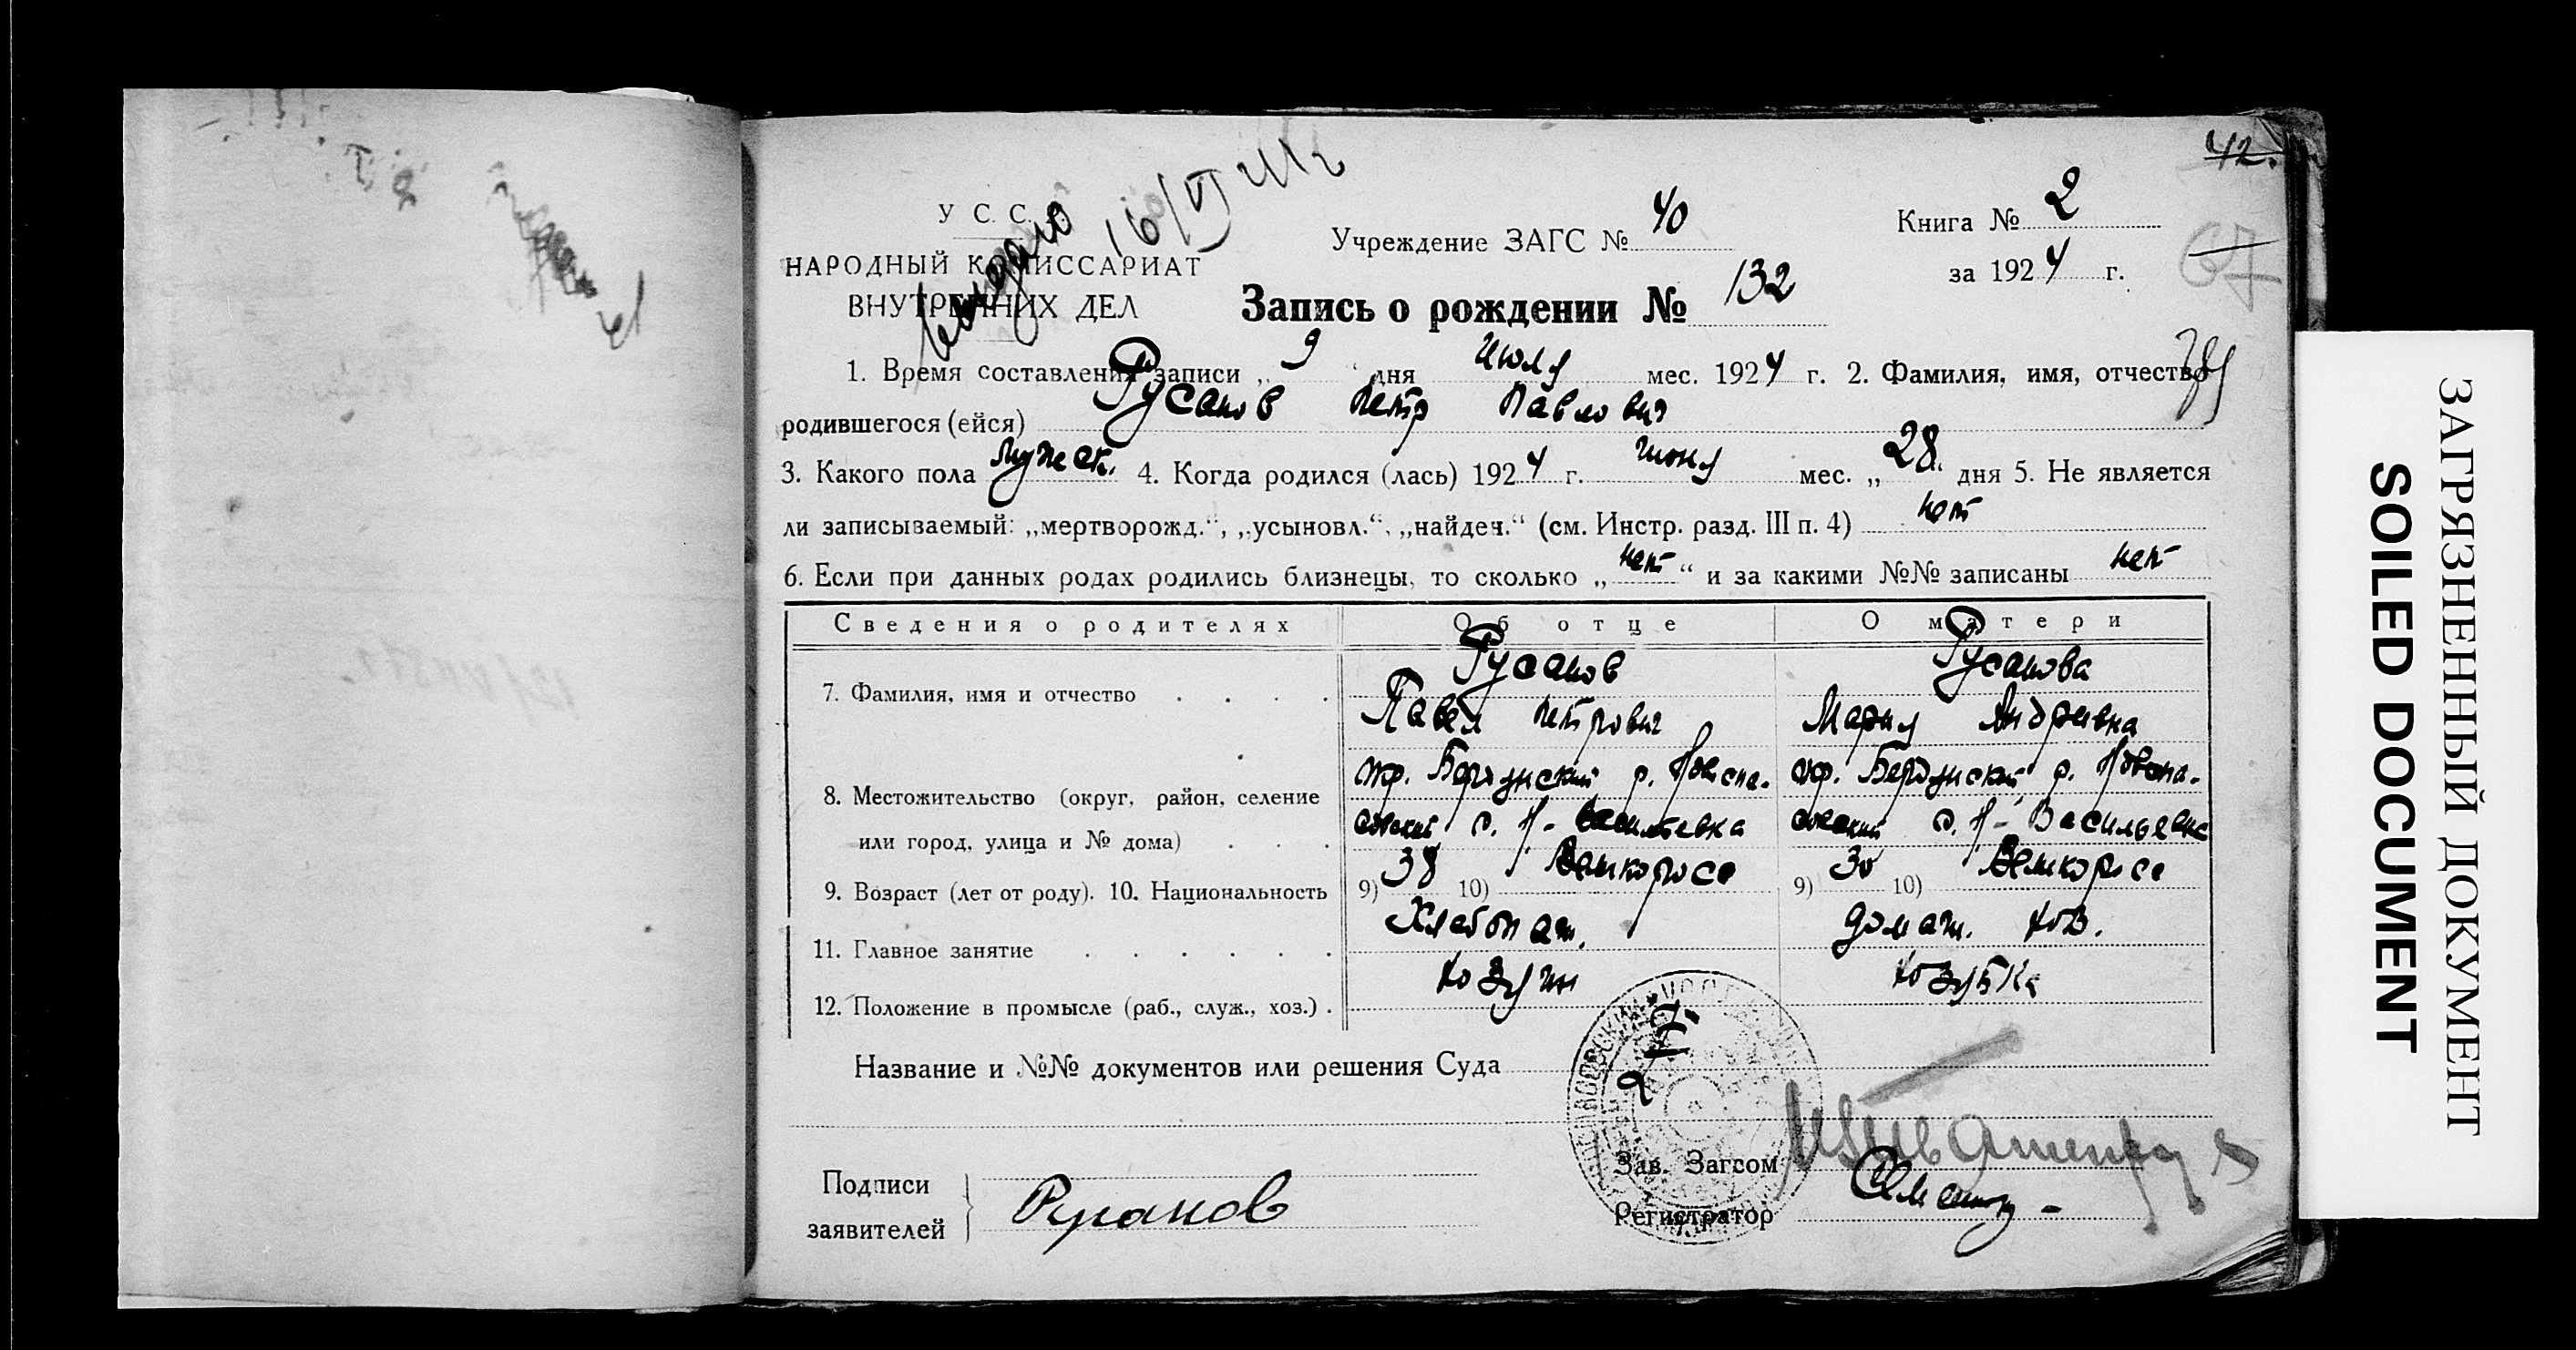 42.
У С. С.
Учреждение ЗАГС № 40
Книга № 2
НАРОДНЫЙ КОМИССАРИАТ
ВНУТРЕННИХ ДЕЛ
за 1924 г.
67
Запись о рождении № 132
1. Время составления записи „ 9 " дня Июля мес. 1924 г. 2. Фамилия, имя, отчество
родившегося (ейся) Русанов Петр Павлович
3. Какого пола мужск. 4. Когда родился (лась) 1924 г. июня мес. „ 28 " дня 5. Не является
ли записываемый: „мертворожд.“, „усыновл.“, „найден.“ (см. Инстр. разд. III п. 4) нет
6. Если при данных родах родились близнецы, то сколько „ нет “ и за какими №№ записаны нет
Сведения о родителях Об отце О матери
Русанов Русанова
7. Фамилия, имя и отчество . . . .
Павел Петрович Мария Андреевна
8. Местожительство (округ, район, селение
окр. Бердянский р. Новоспа- окр. Бердянский р. Новоспа-
или город, улица и № дома) . . .
совский с. Н-Васильевка совский с. Н-Васильевка
9. Возраст (лет от роду). 10. Национальность 9) 38 10) Великоросс 9) 30 10) Великоросс
11. Главное занятие . . . . . Хлебопаш. домаш. хоз.
12. Положение в промысле (раб., служ., хоз.) . хозяин хозяйка
Название и №№ документов или решения Суда
Подписи
заявителей
Русанов
Зав. Загсом
Регистратор
ЗАГРЯЗНЕННЫЙ ДОКУМЕНТ
SOILED DOCUMENT